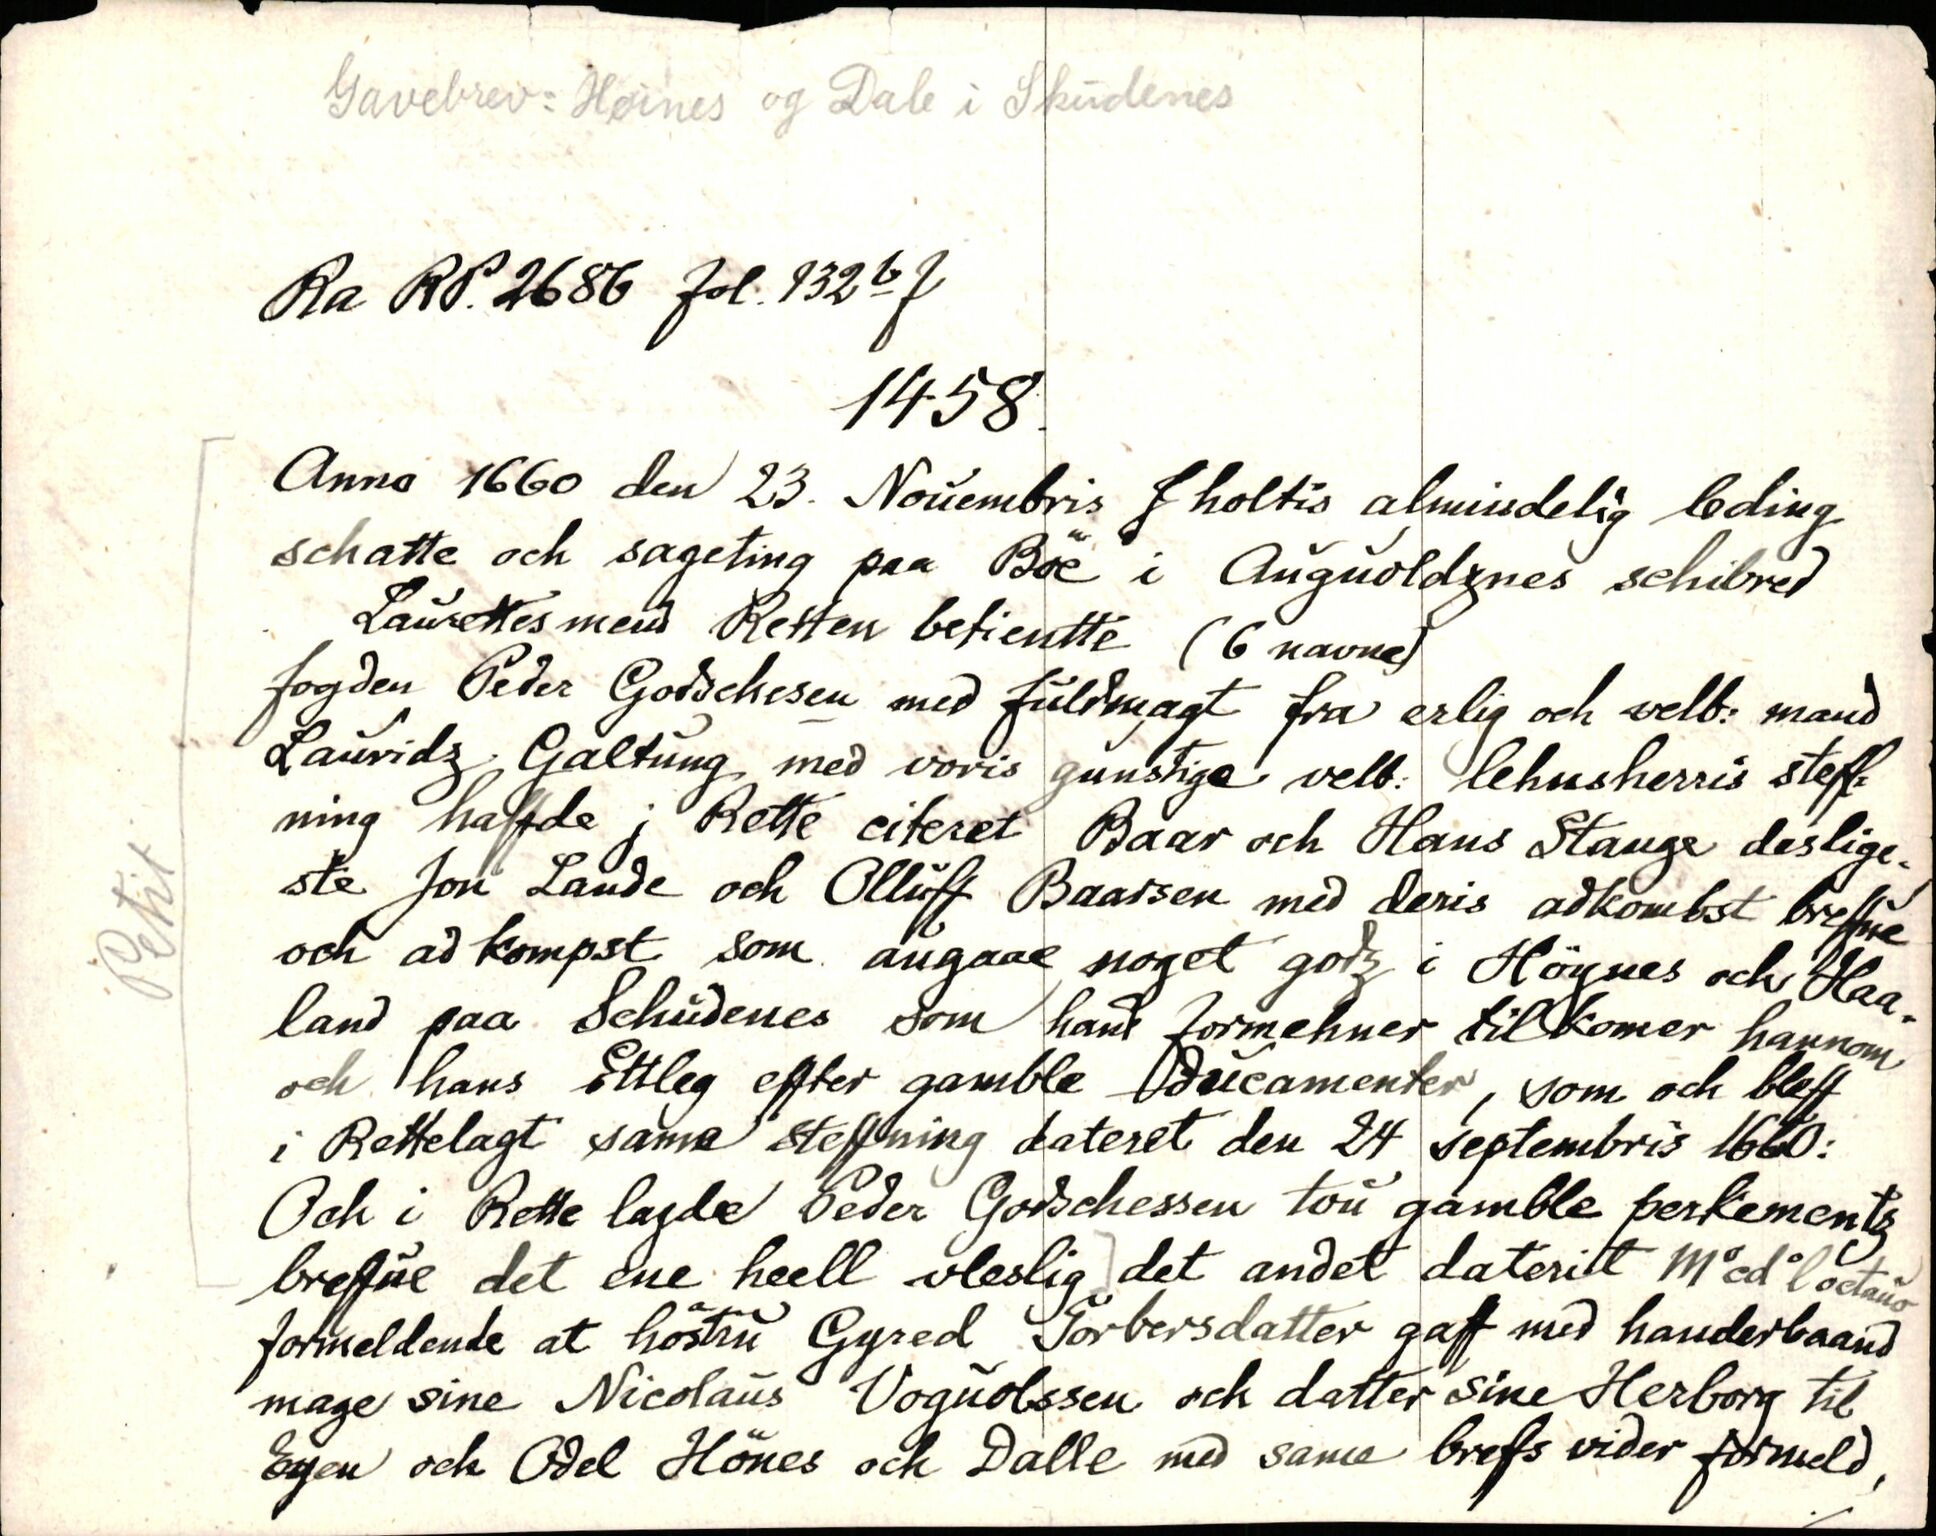 Gavebrev: Høines og Dale i Skudenes
Ra RP. 2686 fol. 132 b f
1458.
Anno 1660 den 23. Nouembris J holtis almindelig leding
schatte och sageting paa Böe i Auguoldznes schibred
Laurettesmend Retten betientte (6 navne)
fogden Peder Godschesen med fuldmagt fra erlig och velb: mand
Lauridz Galtung med voris gunstige velb: lehnsherris steff-
ning haffde j Rette citeret Baar och Hans Stange deslige-
ste Jon Lande och Olluff Baarsen med deris adkombst breffue
och adkompst som angaae noget godz i Höynes och Haa-
land paa Schudenes som hand formehner tilkomer hannom
och hans Ettleg effter gamble Ducamenter, som och bleff
i Rettelagt same steffning dateret den 24 septembris 1660:
Och i Rette lagde Peder Godschessen tou gamble perkements
breffue det ene heell vleslig] det andet daterit M° cd° l octauo
formeldende at höstru Gyred Torbersdatter gaff med handerbaand
mage sine Nicolaus Voguolssen och datter sine Herborg til
Eyen och Odel Hönes och Dalle med same brefs vider formeld,
Petit